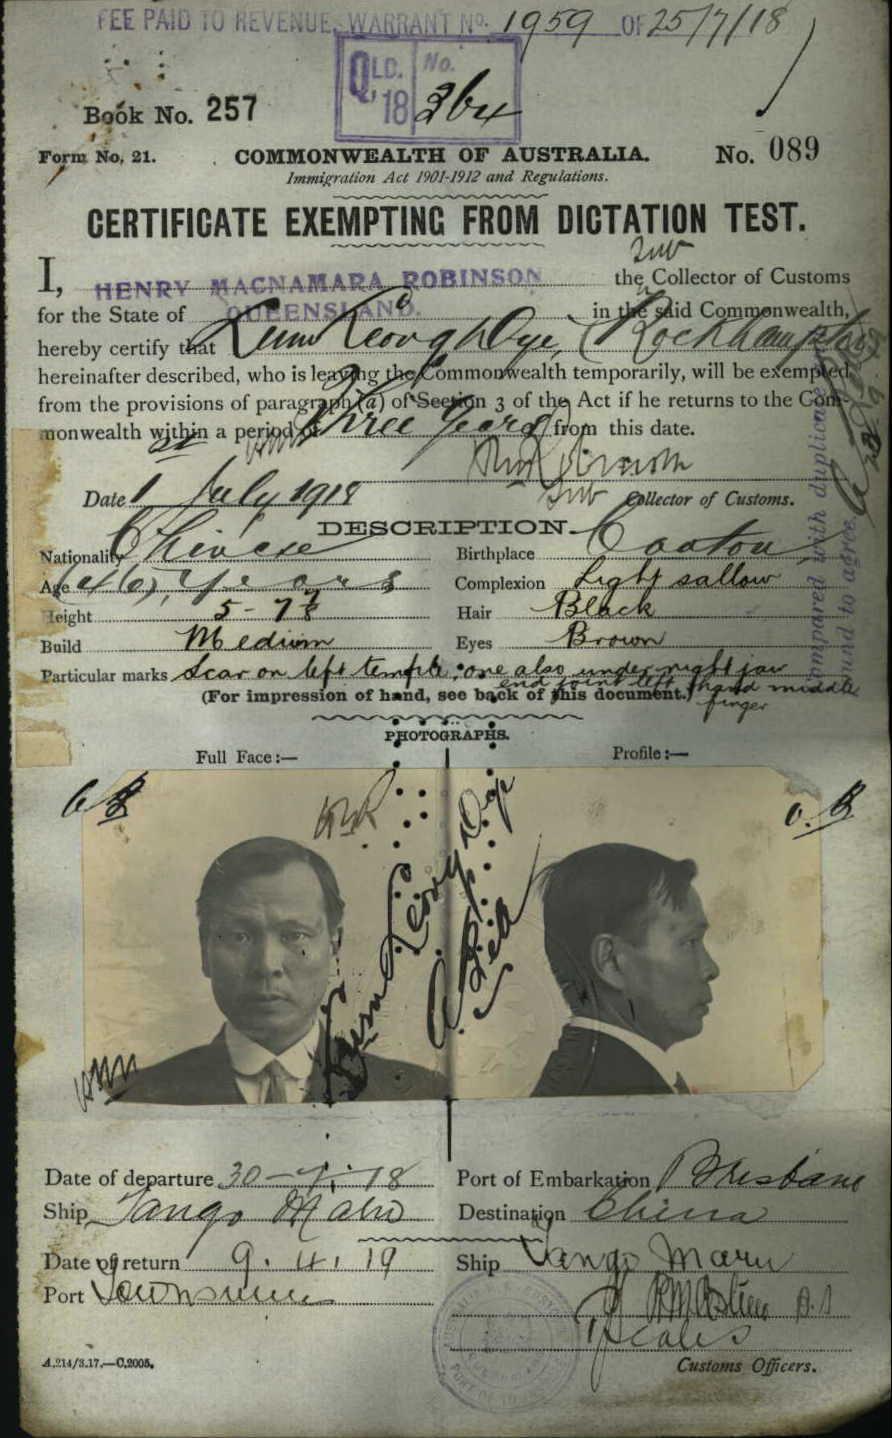 FEE PAID TO REVENUE, WARRANT No. 1959 OF 25/7/18
QLD. No.
18 264
Book No. 257
Form No. 21. COMMONWEALTH OF AUSTRALIA. No. 089
Immigration Act 1901-1912 and Regulations.
CERTIFICATE EXEMPTING FROM DICTATION TEST.
Sub
I, HENRY MACNAMARA ROBINSON the Collector of Customs
for the State of QUEENSLAND. in the said Commonwealth,
hereby certify that (Rockhampton)
hereinafter described, who is leaving the Commonwealth temporarily, will be exempted
from the provisions of paragraph (a) of Section 3 of the Act if he returns to the Com-
monwealth within a period of Three Years from this date.
Date 1 July 1918 Sub Collector of Customs.
DESCRIPTION.
Nationality Chinese Birthplace Canton
Age (46) years Complexion Light sallow
Height 5-7 Hair Black
Build Medium Eyes Brown
Particular marks Scar on left temple; one also under right jaw
end joint left hand middle
finger
(For impression of hand, see back of this document.)
Compared with duplicate
found to agree.
PHOTOGRAPHS.
Full Face:— Profile:—
Date of departure 30-7-18 Port of Embarkation Brisbane
Ship Tango Maru Destination China
Date of return 9.4.19 Ship Tango Maru
Port Townsville
A.214/3.17.—C.2005. Customs Officers.